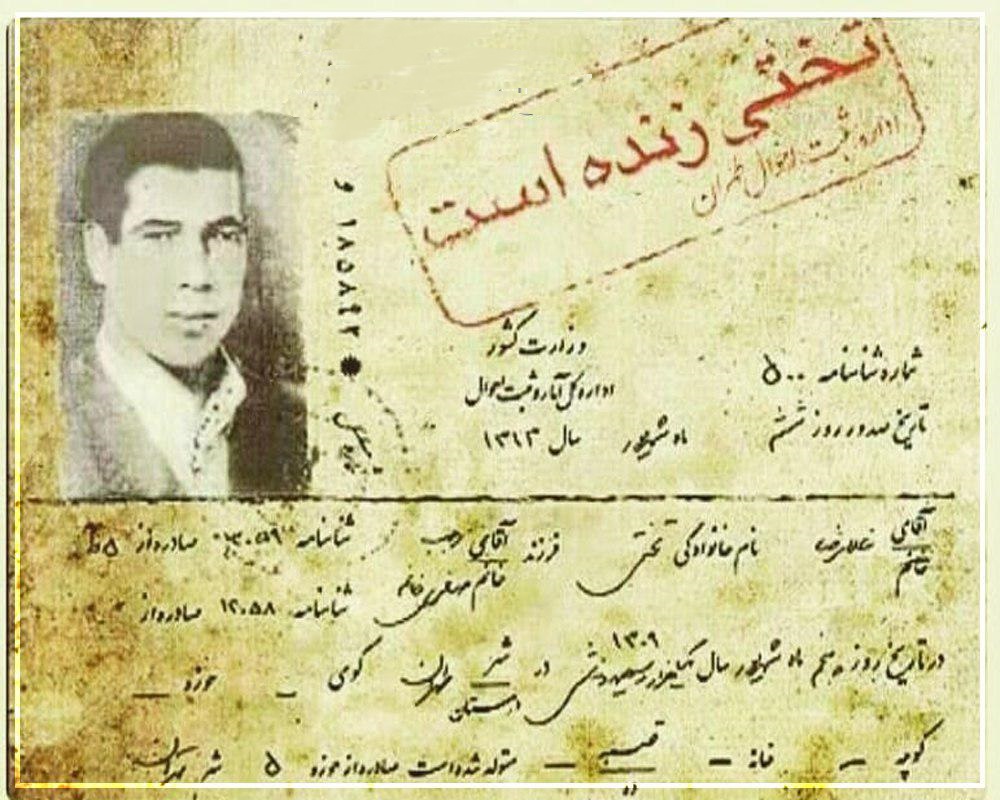 تختی زنده است
اداره ثبت احوال طهران
و ۱۸۵۸۴۲
وزارت کشور
اداره کل آمار و ثبت احوال
شماره شناسنامه ۵۰۰
تاریخ صدور روز ششم ماه شهریور سال ۱۳۱۳
آقای غلامرضا نام خانوادگی تختی فرزند آقای رجب شناسنامه ۱۳۰۵۹ صادره از ۵ ط
خانم
خانم صغری خانم شناسنامه ۱۲۰۵۸ صادره از
۱۳۰۹
در تاریخ روز پنجم ماه شهریور سال یکهزار و سیصد و نه شمسی در شهر طهران کوی - حوزه -
استان
کوچه - خانه - قصبه - متولد شده است صادره از حوزه ۵ شهر طهران
ده